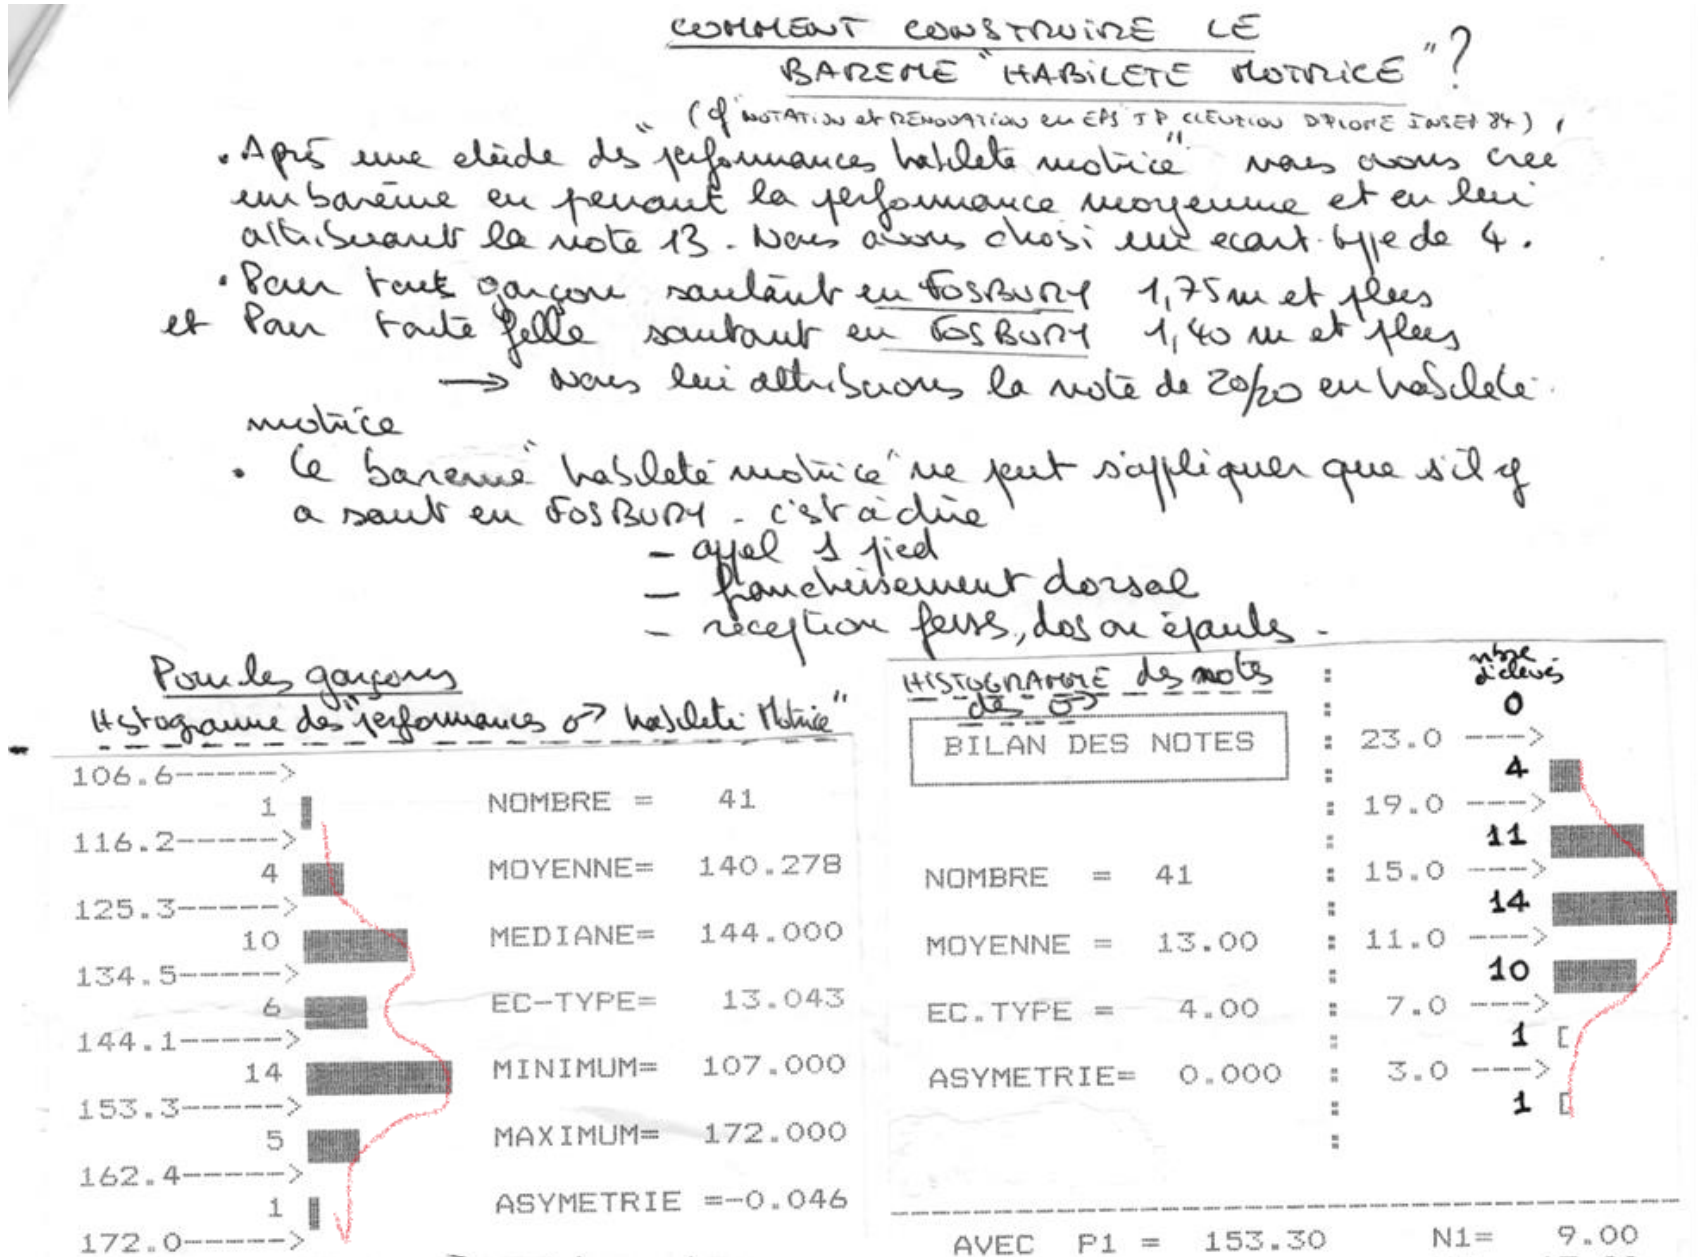 COMMENT CONSTRUIRE LE
BAREME "HABILETE MOTRICE"?
(cf "NOTATION et RENOVATION en EPS" JP CLEUZIOU DIPLOME INSEP 84)
. Après une étude des "performances habileté motrice" nous avons créé
un barème en prenant la performance moyenne et en lui
attribuant la note 13. Nous avons choisi un écart-type de 4.
. Pour tout garçon sautant en FOSBURY 1,75m et plus
et Pour toute fille sautant en FOSBURY 1,40 m et plus
→ Nous lui attribuons la note de 20/20 en habileté
motrice
. Ce barème "habileté motrice" ne peut s'appliquer que s'il y
a saut en FOSBURY - c'est à dire
- appel 1 pied
- franchissement dorsal
- réception fesses, dos ou épaules -
Pour les garçons
Histogramme des "performances ♂ habileté Motrice"
106.6------>
1
116.2------>
4
125.3------>
10
134.5------>
6
144.1------>
14
153.3------>
5
162.4------>
1
172.0------>
NOMBRE = 41
MOYENNE= 140.278
MEDIANE= 144.000
EC-TYPE= 13.043
MINIMUM= 107.000
MAXIMUM= 172.000
ASYMETRIE =-0.046
HISTOGRAMME des notes
des ♂
BILAN DES NOTES
NOMBRE = 41
MOYENNE = 13.00
EC.TYPE = 4.00
ASYMETRIE= 0.000
nbre
d'élèves
0
23.0 ---->
4
19.0 ---->
11
15.0 ---->
14
11.0 ---->
10
7.0 ---->
1
3.0 ---->
1
AVEC P1 = 153.30 N1= 9.00